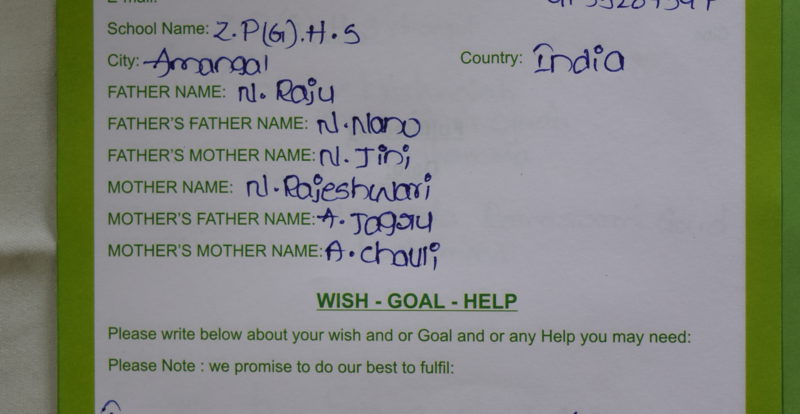 School Name: Z.P(G).H.S
City: Amangal Country: India
FATHER NAME: N. Raju
FATHER'S FATHER NAME: N. Nano
FATHER'S MOTHER NAME: N. Jini
MOTHER NAME: N. Rajeshwari
MOTHER'S FATHER NAME: A. Jagau
MOTHER'S MOTHER NAME: A. chauli
WISH - GOAL - HELP
Please write below about your wish and or Goal and or any Help you may need:
Please Note : we promise to do our best to fulfil: